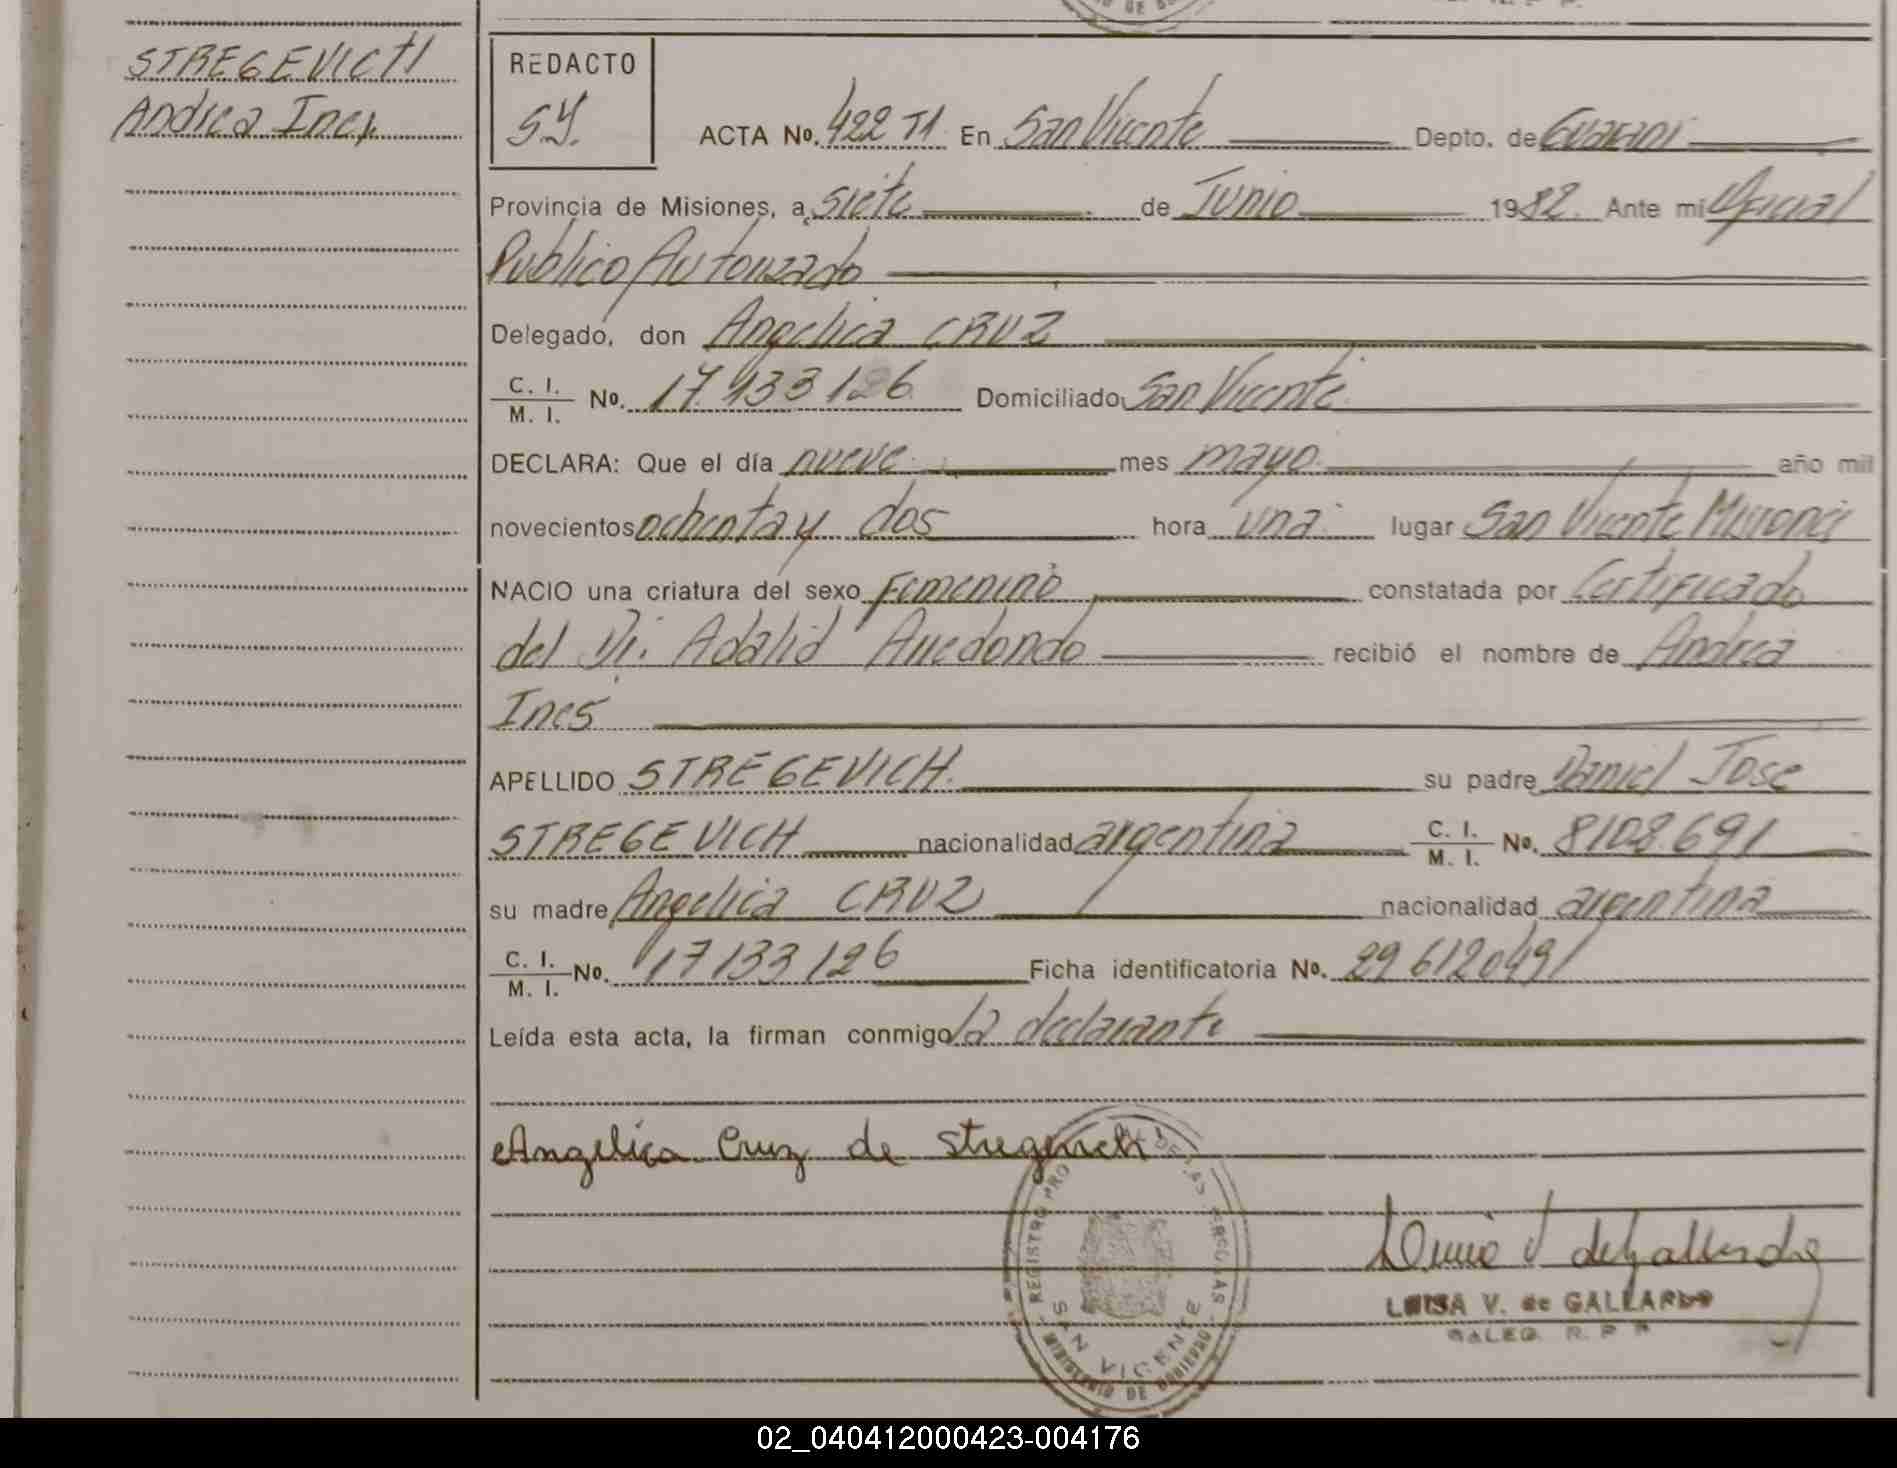 STREGEVICH
Andrea Ines
REDACTO
SY.
ACTA No. 422 T1 En San Vicente Depto. de Guarani
Provincia de Misiones, a siete de Junio 1982. Ante mi Oficial
Publico Autorizado
Delegado, don Angelica CRUZ
C. I. / M. I. No. 17.133126 Domiciliado San Vicente
DECLARA: Que el día nueve mes mayo año mil
novecientos ochenta y dos hora una lugar San Vicente Misiones
NACIO una criatura del sexo Femenino constatada por Certificado
del Dr. Adalid Arredondo recibió el nombre de Andrea
Ines
APELLIDO STREGEVICH. su padre Daniel Jose
STREGEVICH nacionalidad argentina C. I. / M. I. No. 8108.691
su madre Angelica CRUZ nacionalidad argentina
C. I. / M. I. No. 17133126 Ficha identificatoria No. 29612049/
Leída esta acta, la firman conmigo la declarante
Angelica Cruz de Stregevich
REGISTRO PRO DE LAS PERSONAS
SAN VICENTE
MINISTERIO DE GOBIERNO
LUISA V. de GALLARDO
R. P. P.
02_040412000423-004176